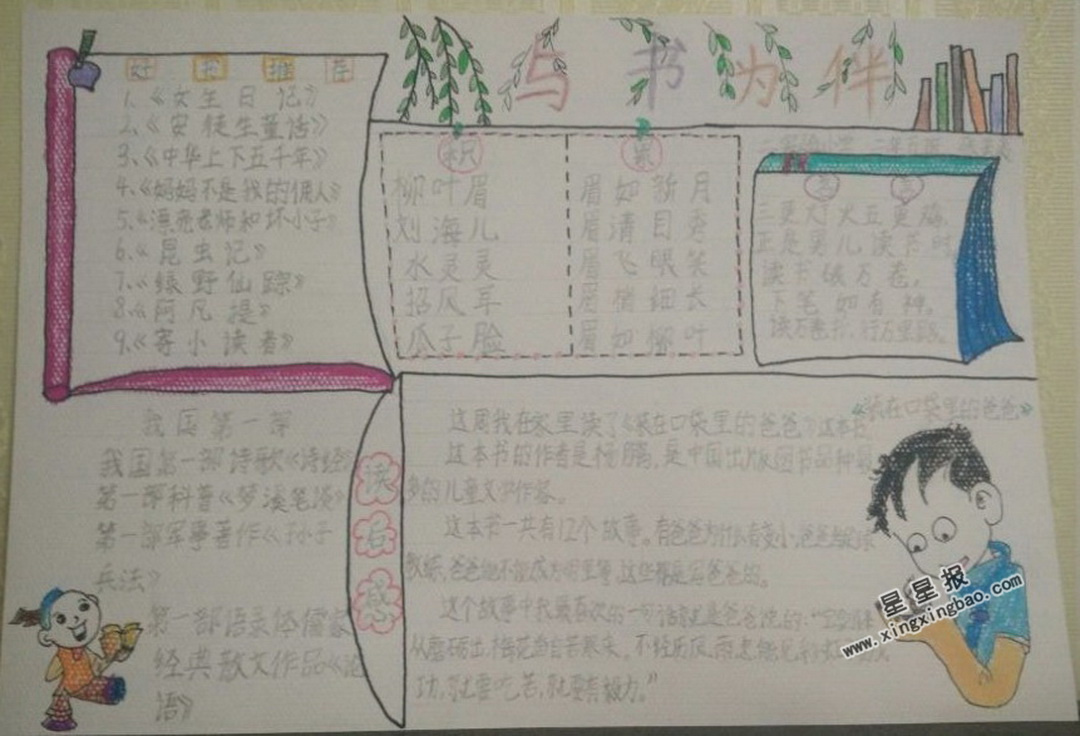 与书为伴
好书推荐
1、《女生日记》
2、《安徒生童话》
3、《中华上下五千年》
4、《妈妈不是我的佣人》
5、《漂亮老师和坏小子》
6、《昆虫记》
7、《绿野仙踪》
8、《阿凡提》
9、《寄小读者》
积累
柳叶眉
刘海儿
水灵灵
招风耳
瓜子脸
眉如新月
眉清目秀
眉飞眼笑
眉梢细长
眉如柳叶
三更灯火五更鸡,
正是男儿读书时,
读书破万卷,
下笔如有神。
读万卷书,行万里路。
我国第一部
我国第一部诗歌《诗经》
第一部科普《梦溪笔谈》
第一部军事著作《孙子
兵法》
第一部语录体儒家
经典散文作品《论
语》
读后感
《装在口袋里的爸爸》
这周我在家里读了《装在口袋里的爸爸》这本书
这本书的作者是杨鹏,是中国出版图书品种最
多的儿童文学作家。
这本书一共有12个故事。有爸爸为什么会变小,爸爸
教练,爸爸能不能成为明星等,这些都是写爸爸的。
这个故事中我最喜欢的一句话就是爸爸说的:"宝剑锋
从磨砺出,梅花香自苦寒来。不经历风雨怎能见彩虹
功,就要吃苦,就要有毅力。"
星星报
www.xingxingbao.com